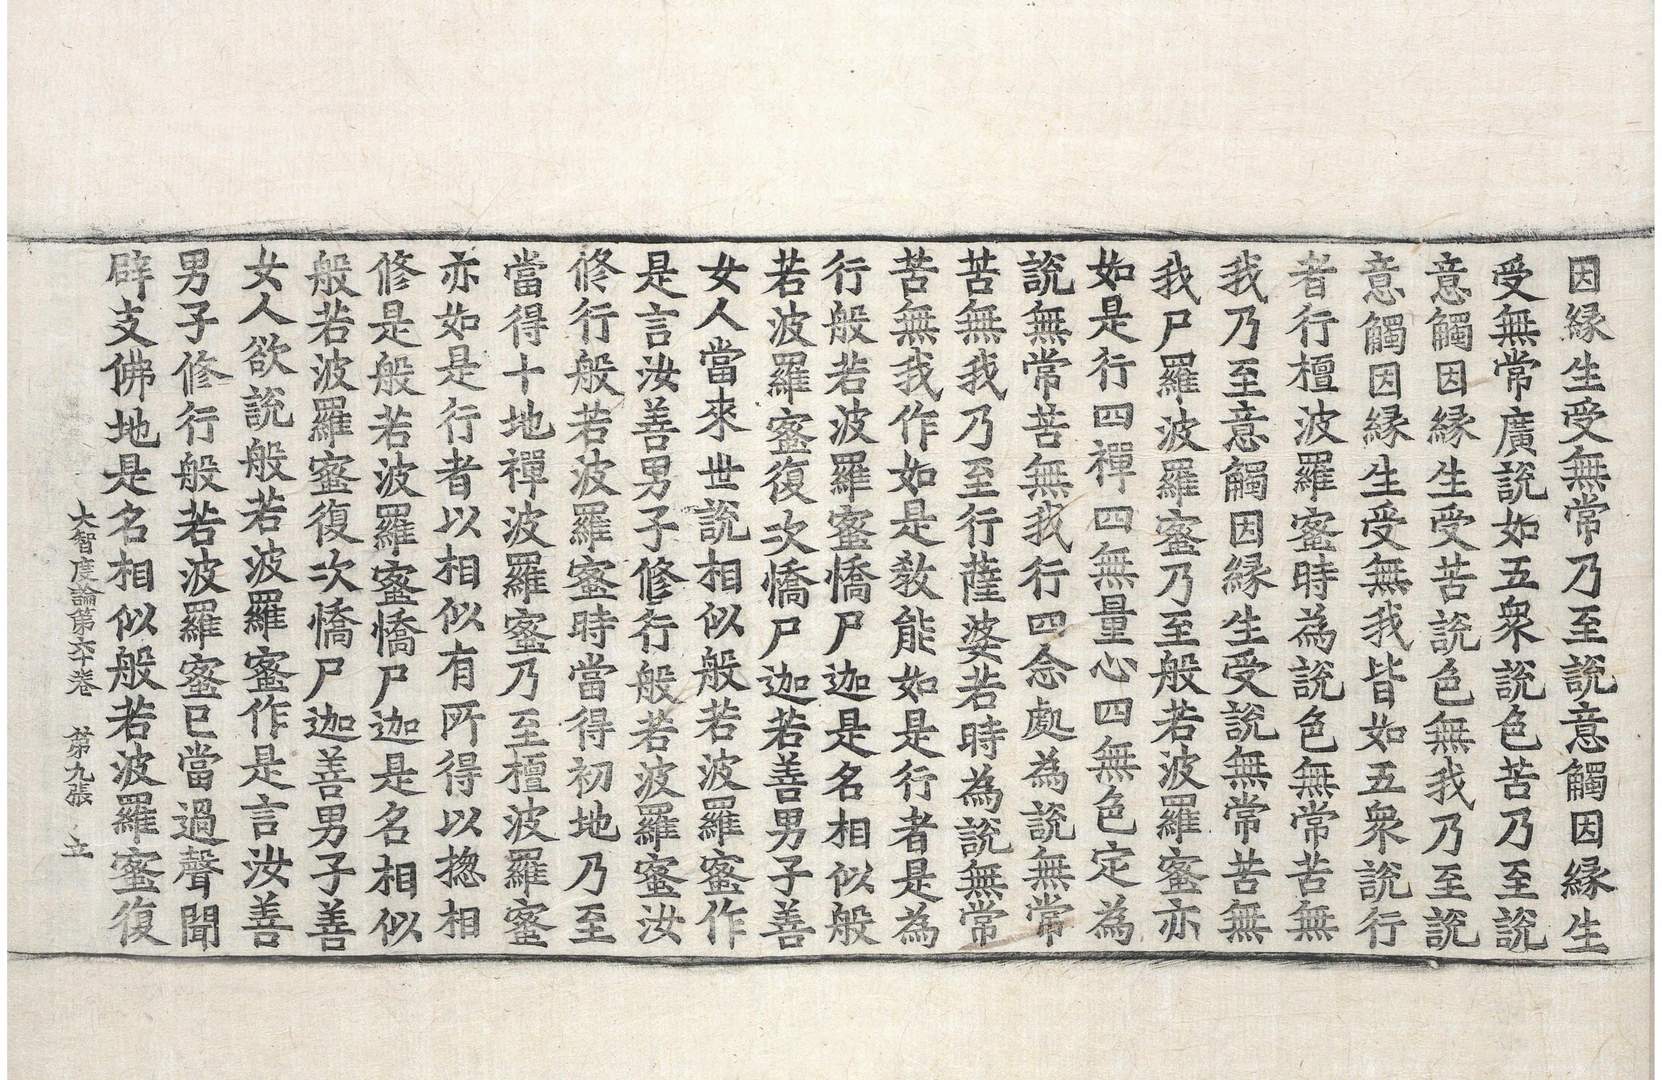 因縁生受無常乃至說意觸因縁生
受無常廣說如五衆說色苦乃至說
意觸因縁生受苦說色無我乃至說
意觸因縁生受無我皆如五衆說行
者行檀波羅蜜時為說色無常苦無
我乃至意觸因縁生受說無常苦無
我尸羅波羅蜜乃至般若波羅蜜亦
如是行四禪四無量心四無色定為
說無常苦無我行四念處為說無常
苦無我乃至行薩婆若時為說無常
苦無我作如是教能如是行者是為
行般若波羅蜜憍尸迦是名相似般
若波羅蜜復次憍尸迦若善男子善
女人當來世說相似般若波羅蜜作
是言汝善男子修行般若波羅蜜汝
修行般若波羅蜜時當得初地乃至
當得十地禪波羅蜜乃至檀波羅蜜
亦如是行者以相似有所得以揔相
修是般若波羅蜜憍尸迦是名相似
般若波羅蜜復次憍尸迦善男子善
女人欲說般若波羅蜜作是言汝善
男子修行般若波羅蜜已當過聲聞
辟支佛地是名相似般若波羅蜜復
大智度論第六十卷 第九張 立